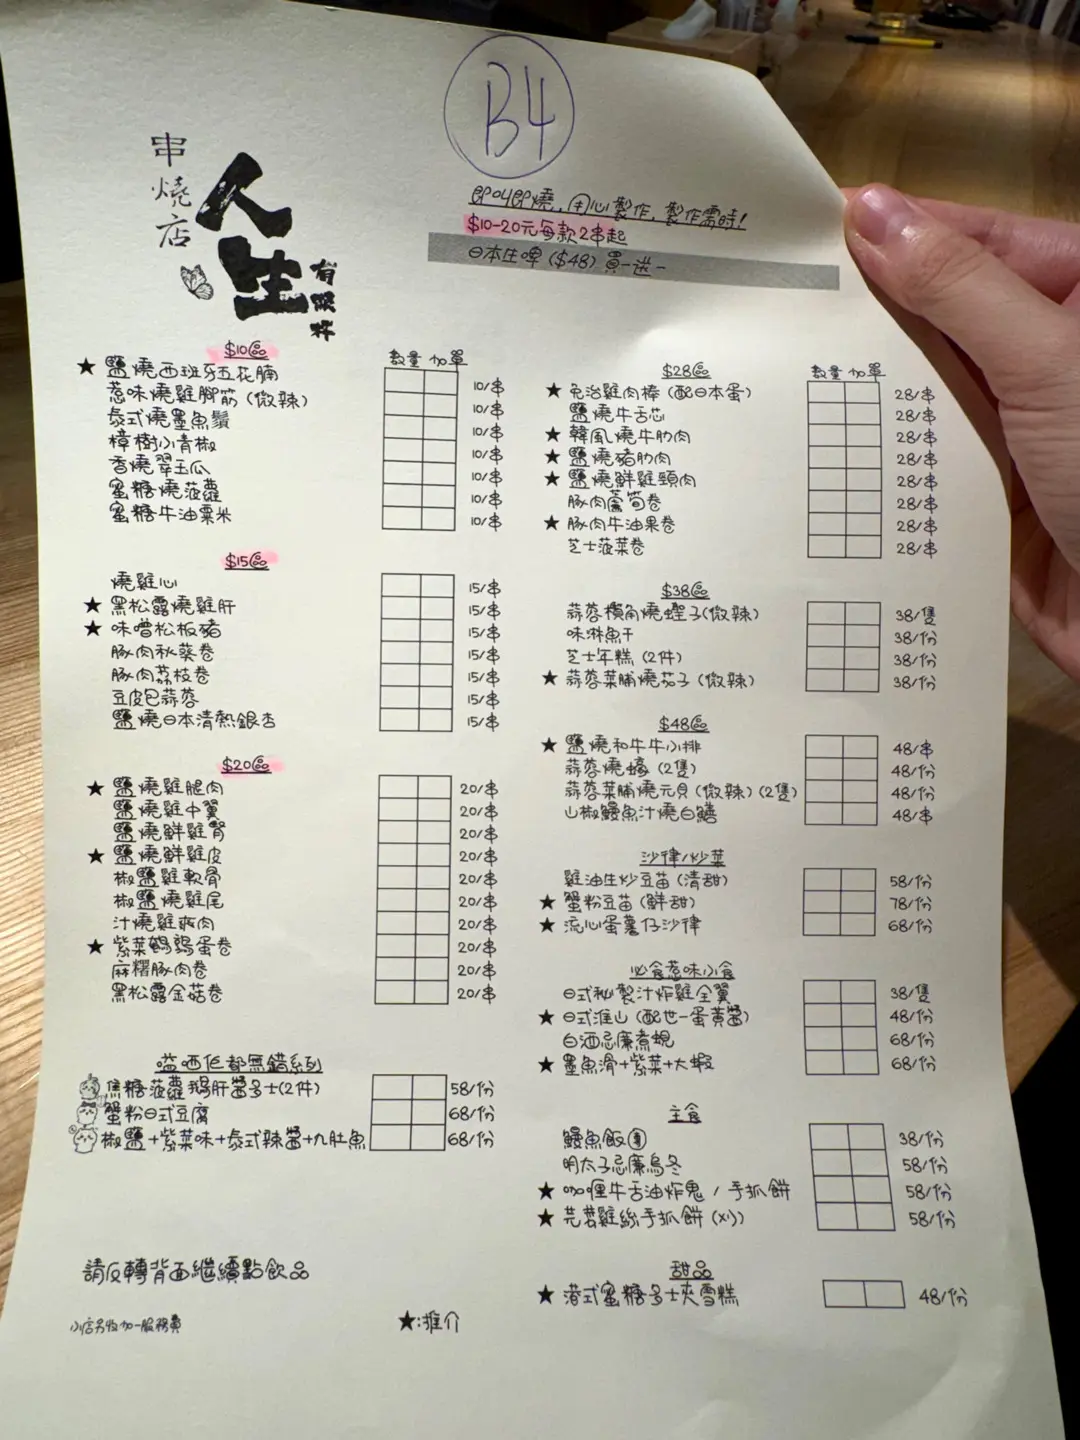 B4
串燒店
人生
有幾串
即叫即燒，用心製作，製作需時！
$10-20元每款2串起
日本生啤($48)買一送一
$10區
數量 加單
★ 鹽燒西班牙五花腩 10/串
惹味燒雞腳筋(微辣) 10/串
泰式燒墨魚鬚 10/串
樟樹小青椒 10/串
香燒翠玉瓜 10/串
蜜糖燒菠蘿 10/串
蜜糖牛油粟米 10/串
$15區
燒雞心 15/串
★ 黑松露燒雞肝 15/串
★ 味噌松板豬 15/串
豚肉秋葵卷 15/串
豚肉荔枝卷 15/串
豆皮包蒜蓉 15/串
鹽燒日本清熱銀杏 15/串
$20區
★ 鹽燒雞腿肉 20/串
鹽燒雞中翼 20/串
鹽燒鮮雞腎 20/串
★ 鹽燒鮮雞皮 20/串
椒鹽雞軟骨 20/串
椒鹽燒雞尾 20/串
汁燒雞爽肉 20/串
★ 紫菜鵪鶉蛋卷 20/串
麻糬豚肉卷 20/串
黑松露金菇卷 20/串
嗌哂佢都無錯系列
焦糖菠蘿鵝肝醬多士(2件) 58/份
蟹粉日式豆腐 68/份
椒鹽+紫菜味+泰式辣醬+九肚魚 68/份
請反轉背面繼續點飲品
小店另收加一服務費
★:推介
$28區
數量 加單
★ 免治雞肉棒(配日本蛋) 28/串
鹽燒牛舌芯 28/串
★ 韓風燒牛肋肉 28/串
★ 鹽燒豬肋肉 28/串
★ 鹽燒鮮雞頸肉 28/串
豚肉蘆筍卷 28/串
★ 豚肉牛油果卷 28/串
芝士菠菜卷 28/串
$38區
蒜蓉欖角燒蟶子(微辣) 38/隻
味淋魚干 38/份
芝士年糕(2件) 38/份
★ 蒜蓉菜脯燒茄子(微辣) 38/份
$48區
★ 鹽燒和牛牛小排 48/串
蒜蓉燒蠔(2隻) 48/份
蒜蓉菜脯燒元貝(微辣)(2隻) 48/份
山椒鰻魚汁燒白鱔 48/串
沙律/炒菜
雞油生炒豆苗(清甜) 58/份
★ 蟹粉豆苗(鮮甜) 78/份
★ 流心蛋薯仔沙律 68/份
必食惹味小食
日式秘製汁炸雞全翼 38/隻
★ 日式淮山(配世一蛋黃醬) 48/份
白酒忌廉煮蜆 68/份
★ 墨魚滑+紫菜+大蝦 68/份
主食
鰻魚飯團 38/份
明太子忌廉烏冬 58/份
★ 咖喱牛舌油炸鬼/手抓餅 58/份
★ 芫荽雞絲手抓餅(凍) 58/份
甜品
★ 港式蜜糖多士夾雪糕 48/份